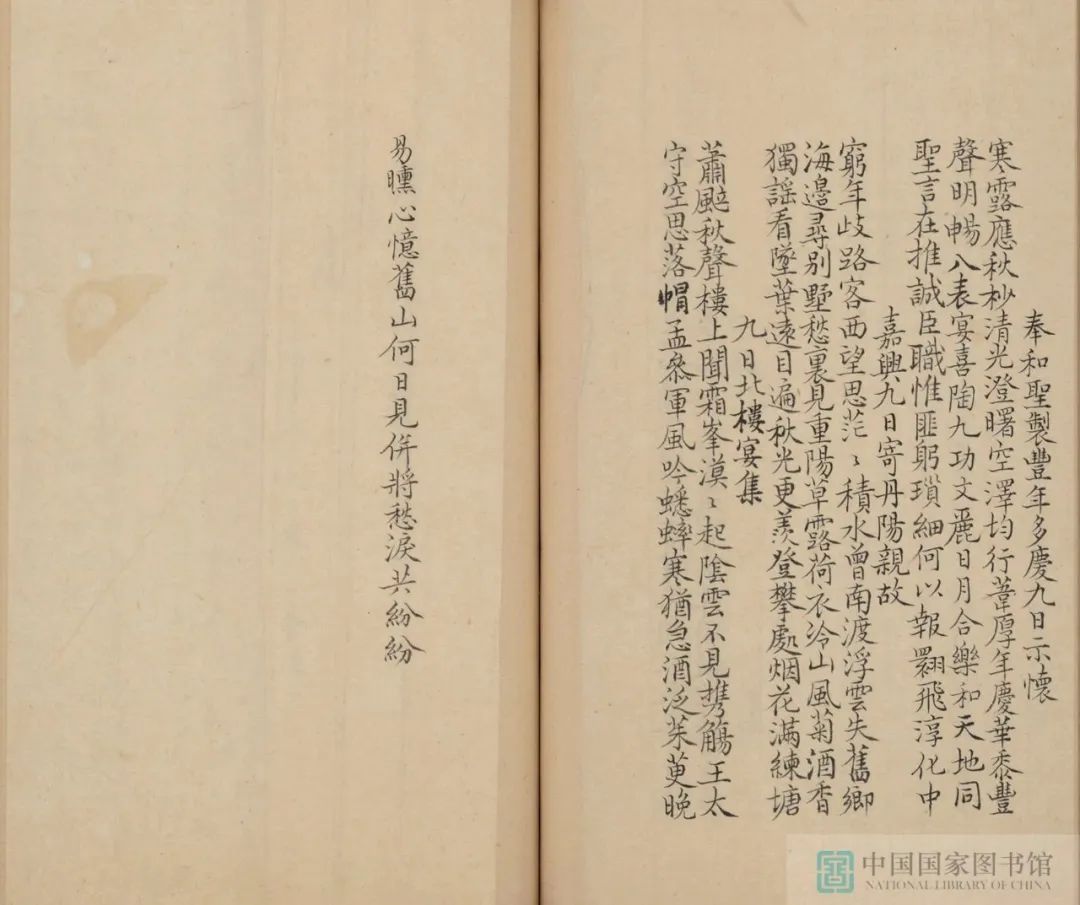 奉和聖製豐年多慶九日示懷
寒露應秋杪清光澄曙空澤均行葦厚年慶華黍豐
聲明暢八表宴喜陶九功文麗日月合樂和天地同
聖言在推誠臣職惟匪躬瑣細何以報翾飛淳化中
嘉興九日寄丹陽親故
窮年歧路客西望思茫〻積水曾南渡浮雲失舊鄉
海邊尋別墅愁裏見重陽草露荷衣冷山風菊酒香
獨謠看墜葉遠目遍秋光更羨登攀處烟花滿練塘
九日北樓宴集
蕭颸秋聲樓上聞霜峯漠〻起陰雲不見攜觴王太
守空思落帽孟叅軍風吟蟋蟀寒猶急酒泛茱萸晚
易曛心憶舊山何日見併將愁淚共紛紛
中国国家图书馆
NATIONAL LIBRARY OF CHINA